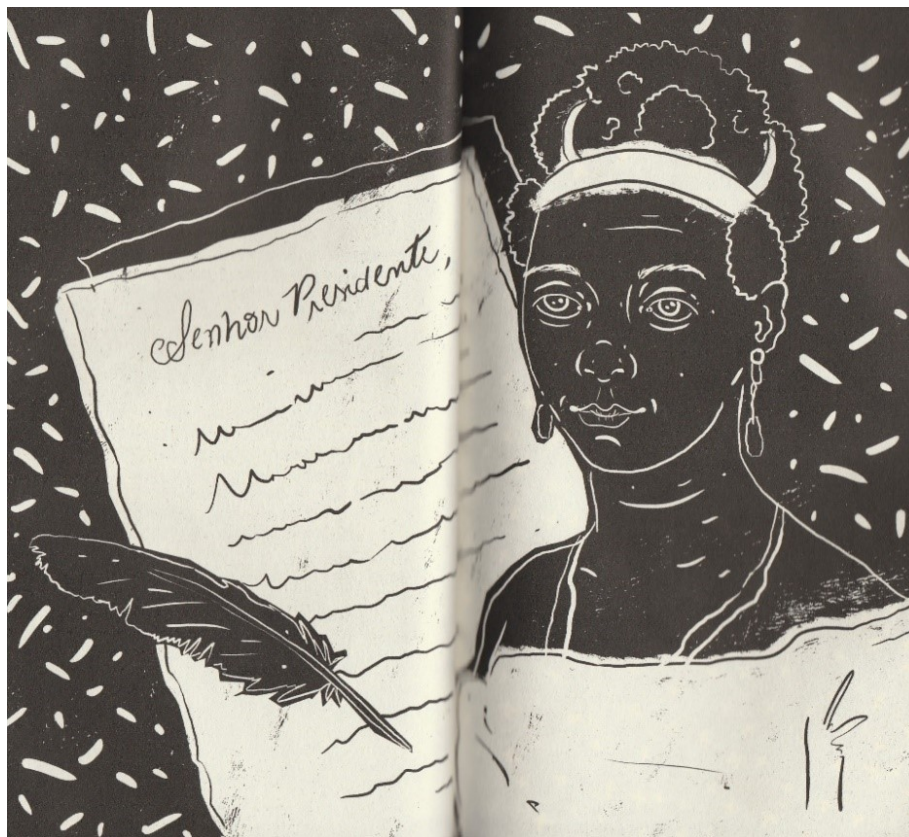 Senhor Presidente,